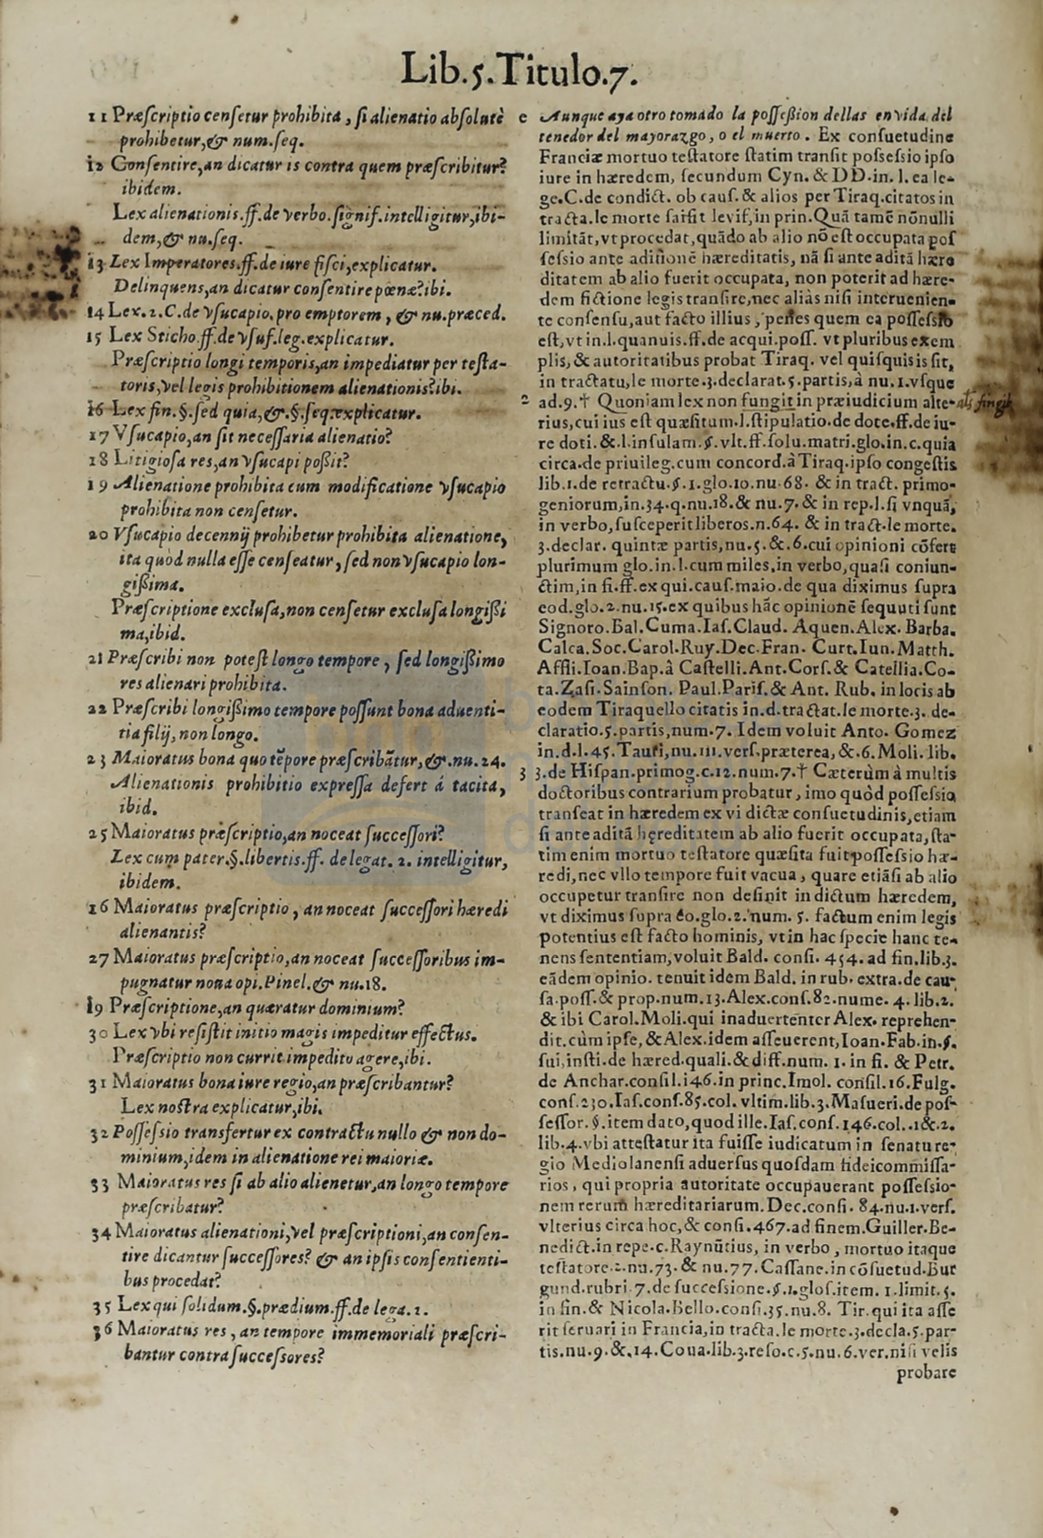 Lib.5.Titulo.7.
11 Præſcriptio cenſetur prohibita, ſi alienatio abſolutè
prohibetur,& num.ſeq.
12 Conſentire,an dicatur is contra quem præſcribitur?
ibidem.
Lex alienationis.ff.de verbo.ſignif.intelligitur,ibi-
dem,& nu.ſeq.
13 Lex Imperatores.ff.de iure fiſci,explicatur.
Delinquens,an dicatur conſentire pœnæ?ibi.
14 Lex.2.C.de vſucapio.pro emptorem, & nu.præced.
15 Lex Sticho.ff.de vſuf.leg.explicatur.
Præſcriptio longi temporis,an impediatur per teſta-
toris,vel legis prohibitionem alienationis?ibi.
16 Lex fin.§.ſed quia,&.§.ſeq.explicatur.
17 Vſucapio,an ſit neceſſaria alienatio?
18 Litigioſa res,an vſucapi poßit?
19 Alienatione prohibita cum modificatione vſucapio
prohibita non cenſetur.
20 Vſucapio decennij prohibetur prohibita alienatione,
ita quòd nulla eſſe cenſeatur, ſed non vſucapio lon-
gißima.
Præſcriptione excluſa,non cenſetur excluſa longißi
ma,ibid.
21 Præſcribi non poteſt longo tempore, ſed longißimo
res alienari prohibita.
22 Præſcribi longißimo tempore poſſunt bona aduenti-
tia filij, non longo.
23 Maioratus bona quo tẽpore præſcribãtur,&.nu.24.
Alienationis prohibitio expreſſa defert á tacita,
ibid.
25 Maioratus præſcriptio,an noceat ſucceſſori?
Lex cum pater.§.libertis.ff. de legat. 2. intelligitur,
ibidem.
16 Maioratus præſcriptio, an noceat ſucceſſori hæredi
alienantis?
27 Maioratus præſcriptio,an noceat ſucceſſoribus im-
pugnatur noua opi.Pinel.& nu.18.
19 Præſcriptione,an quæratur dominium?
30 Lex vbi reſiſtit initio magis impeditur effectus.
Præſcriptio non currit impedito agere,ibi.
31 Maioratus bona iure regio,an præſcribantur?
Lex noſtra explicatur,ibi.
32 Poſſeſsio transfertur ex contractu nullo & non do-
minium,idem in alienatione rei maioriæ.
33 Maioratus res ſi ab alio alienetur,an longo tempore
præſcribatur?
34 Maioratus alienationi,vel præſcriptioni,an conſen-
tire dicantur ſucceſſores? & an ipſis conſentienti-
bus procedat?
35 Lex qui ſolidum.§.prædium.ff.de lega. 2.
36 Maioratus res, an tempore immemoriali præſcri-
bantur contra ſucceſsores?
e Aunque aya otro tomado la poſſeßion dellas en vida del
tenedor del mayorazgo, o el muerto. Ex conſuetudine
Franciæ mortuo teſtatore ſtatim tranſit poſseſsio ipſo
iure in hæredem, ſecundum Cyn. & DD.in. l. ea le-
ge.C.de condict. ob cauſ.& alios per Tiraq.citatos in
tracta.le morte ſaiſit le vif,in prin.Quã tamẽ nõnulli
limitãt,vt procedat,quãdo ab alio nõ eſt occupata poſ
ſeſsio ante aditionẽ hæreditatis, nã ſi ante aditã hære
ditatem ab alio fuerit occupata, non poterit ad hære-
dem fictione legis tranſire,nec aliàs niſi interuenien-
te conſenſu,aut facto illius, penes quem ea poſſeſsio
eſt,vt in.l.quamuis.ff.de acqui.poſſ. vt pluribus exem
plis,& autoritatibus probat Tiraq. vel quiſquis is ſit,
in tractatu,le morte.3.declarat.5.partis,à nu.1.vſque
2 ad.9.† Quoniam lex non fungit in præiudicium alte- al.fingit
rius,cui ius eſt quæſitum.l.ſtipulatio.de dote.ff.de iu-
re doti.&.l.inſulam.§.vlt.ff.ſolu.matri.glo.in.c.quia
circa.de priuileg.cum concord.à Tiraq.ipſo congeſtis
lib.1.de retractu.§.1.glo.10.nu.68. & in tract. primo-
geniorum,in.34.q.nu.18.& nu.7.& in rep.l.ſi vnquã,
in verbo,ſuſceperit liberos.n.64. & in tract.le morte.
3.declar. quintæ partis,nu.5.&.6.cui opinioni cõfert
plurimum glo.in.l.cum miles,in verbo,quaſi coniun-
ctim,in fi.ff.ex qui.cauſ.maio.de qua diximus ſupra
eod.glo.2.nu.15.ex quibus hãc opinionẽ ſequuti ſunt
Signoro.Bal.Cuma.Iaſ.Claud. Aquen.Alex. Barba.
Calca.Soc.Carol.Ruy.Dec.Fran. Curt.Iun.Matth.
Affli.Ioan.Bap.à Caſtelli.Ant.Corſ.& Catellia.Co-
ta.Zaſi.Sainſon. Paul.Pariſ.& Ant. Rub. in locis ab
eodem Tiraquello citatis in.d.tractat.le morte.3. de-
claratio.5.partis,num.7. Idem voluit Anto. Gomez
in.d.l.45.Tauri,nu.111.verſ.præterea,&.6.Moli. lib.
3 3.de Hiſpan.primog.c.12.num.7.† Cæterùm à multis
doctoribus contrarium probatur, imo quòd poſſeſsio
tranſeat in hæredem ex vi dictæ conſuetudinis,etiam
ſi ante aditã hęreditatem ab alio fuerit occupata,ſta-
tim enim mortuo teſtatore quæſita fuit poſſeſsio hæ-
redi,nec vllo tempore fuit vacua, quare etiãſi ab alio
occupetur tranſire non deſinit in dictum hæredem,
vt diximus ſupra eo.glo.2.num. 5. factum enim legis
potentius eſt facto hominis, vt in hac ſpecie hanc te-
nens ſententiam,voluit Bald. conſi. 454. ad fin.lib.3.
eãdem opinio. tenuit idem Bald. in rub. extra.de cau-
ſa.poſſ.& prop.num.13.Alex.conſ.82.nume. 4. lib.2.
& ibi Carol.Moli.qui inaduertenter Alex. reprehen-
dit.cùm ipſe,& Alex.idem aſſeuerent,Ioan.Fab.in.§.
ſui,inſti.de hæred.quali.& diff.num. 1. in fi. & Petr.
de Anchar.conſil.146.in princ.Imol. conſil.16.Fulg.
conſ.230.Iaſ.conſ.85.col. vltim.lib.3.Maſueri.de poſ-
ſeſſor.§.item dato,quod ille.Iaſ.conſ.146.col.1&.2.
lib.4.vbi atteſtatur ita fuiſſe iudicatum in ſenatu re-
gio Mediolanenſi aduerſus quoſdam fideicommiſſa-
rios, qui propria autoritate occupauerant poſſeſsio-
nem rerum hæreditariarum.Dec.conſi. 84.nu.1.verſ.
vlterius circa hoc,& conſi.467.ad finem.Guiller.Be-
nedict.in repe.c.Raynũtius, in verbo, mortuo itaque
teſtatore.2.nu.73.& nu.77.Caſſane.in cõſuetud.Bur
gund.rubri.7.de ſucceſsione.§.1.gloſ.item. 1.limit.5.
in fin.& Nicola.Bello.conſi.35.nu.8. Tir.qui ita aſſe
rit ſeruari in Francia,in tracta.le morte.3.decla.5.par-
tis.nu.9.&.14.Coua.lib.3.reſo.c.5.nu.6.ver.niſi velis
probare